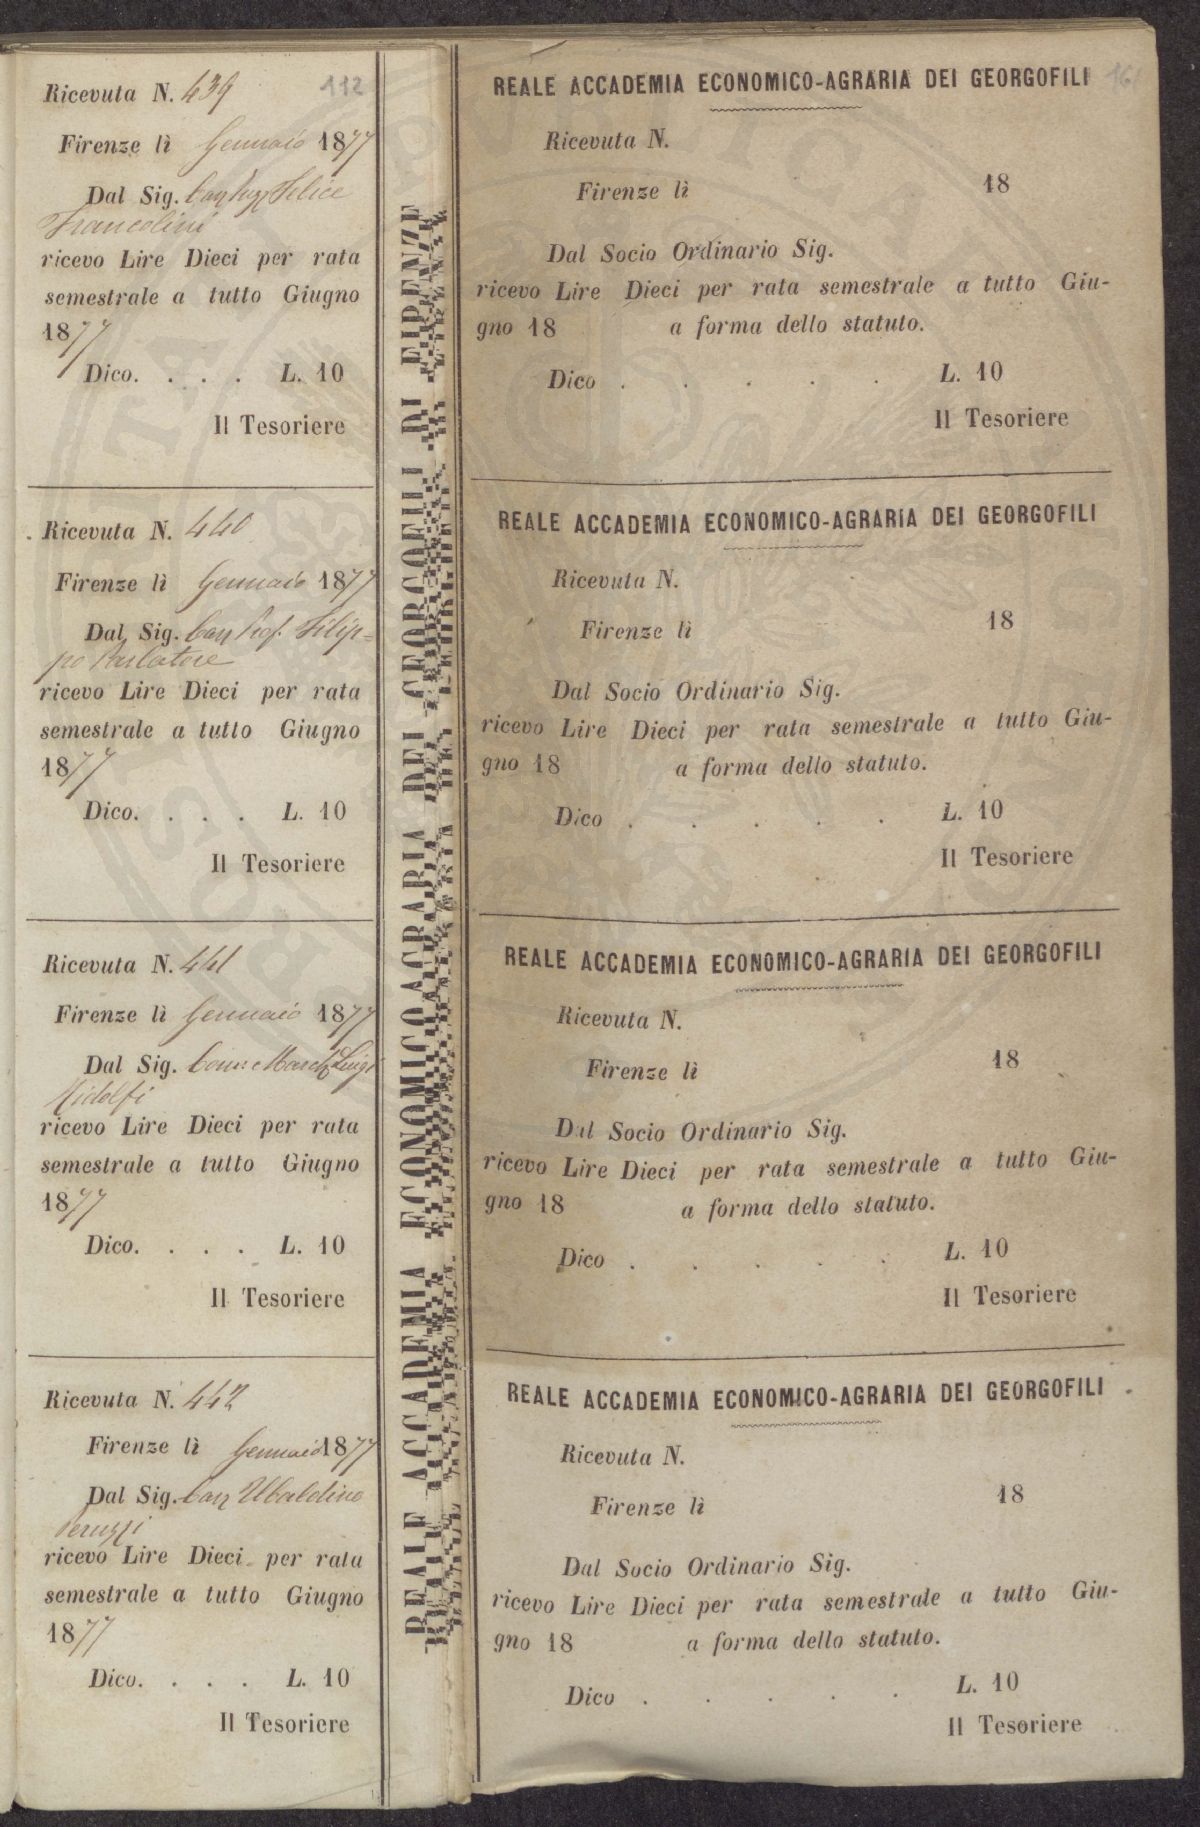 Ricevuta N. 439
112
Firenze lì Gennaio 1877
Dal Sig. Cav Ing Felice
Francolini
ricevo Lire Dieci per rata
semestrale a tutto Giugno
1877
Dico. . . . L. 10
Il Tesoriere
Ricevuta N. 440
Firenze lì Gennaio 1877
Dal Sig. Cav Prof. Filip=
po Parlatore
ricevo Lire Dieci per rata
semestrale a tutto Giugno
1877
Dico. . . . L. 10
Il Tesoriere
Ricevuta N. 441
Firenze lì Gennaio 1877
Dal Sig. Comm March Luigi
Ridolfi
ricevo Lire Dieci per rata
semestrale a tutto Giugno
1877
Dico. . . . L. 10
Il Tesoriere
Ricevuta N. 442
Firenze lì Gennaio 1877
Dal Sig. Cav Ubaldino
Peruzzi
ricevo Lire Dieci per rata
semestrale a tutto Giugno
1877
Dico. . . . L. 10
Il Tesoriere
REALE ACCADEMIA ECONOMICO AGRARIA DEI GEORGOFILI DI FIRENZE
REALE ACCADEMIA ECONOMICO-AGRARIA DEI GEORGOFILI
161
Ricevuta N.
Firenze lì 18
Dal Socio Ordinario Sig.
ricevo Lire Dieci per rata semestrale a tutto Giu-
gno 18 a forma dello statuto.
Dico . . . . . L. 10
Il Tesoriere
REALE ACCADEMIA ECONOMICO-AGRARIA DEI GEORGOFILI
Ricevuta N.
Firenze lì 18
Dal Socio Ordinario Sig.
ricevo Lire Dieci per rata semestrale a tutto Giu-
gno 18 a forma dello statuto.
Dico . . . . . L. 10
Il Tesoriere
REALE ACCADEMIA ECONOMICO-AGRARIA DEI GEORGOFILI
Ricevuta N.
Firenze lì 18
Dal Socio Ordinario Sig.
ricevo Lire Dieci per rata semestrale a tutto Giu-
gno 18 a forma dello statuto.
Dico . . . . . L. 10
Il Tesoriere
REALE ACCADEMIA ECONOMICO-AGRARIA DEI GEORGOFILI
Ricevuta N.
Firenze lì 18
Dal Socio Ordinario Sig.
ricevo Lire Dieci per rata semestrale a tutto Giu-
gno 18 a forma dello statuto.
Dico . . . . . L. 10
Il Tesoriere